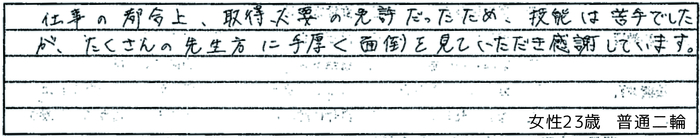 仕事の都合上、取得必要の免許だったため、技能は苦手でした
が、たくさんの先生方に手厚く面倒を見ていただき感謝しています。
女性23歳 普通二輪